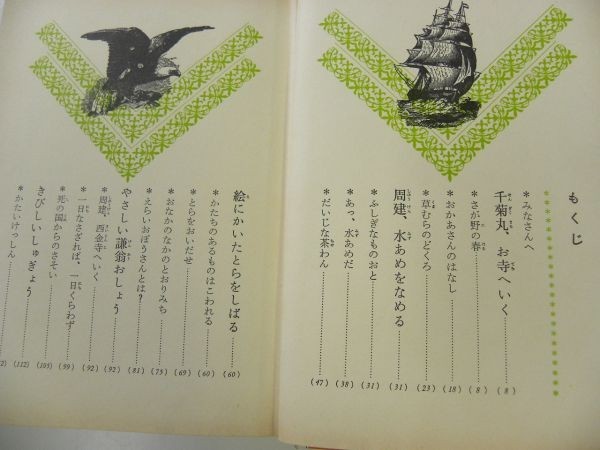 もくじ
＊みなさんへ
千菊丸、お寺へいく……(8)
＊さが野の春……(8)
＊おかあさんのはなし……(18)
＊草むらのどくろ……(23)
周建、水あめをなめる……(31)
＊ふしぎなものおと……(31)
＊あっ、水あめだ……(38)
＊だいじな茶わん……(47)
絵にかいたとらをしばる……(60)
＊かたちのあるものはこわれる……(60)
＊とらをおいだせ……(69)
＊おなかのなかのとおりみち……(75)
＊えらいおぼうさんとは？……(81)
やさしい謙翁おしょう……(92)
＊周建、西金寺へいく……(92)
＊一日なさざれば、一日くらわず……(99)
＊死の国からのさそい……(105)
きびしいしゅぎょう……(112)
＊かたいけっしん……